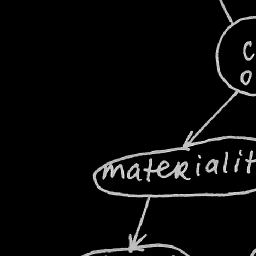 c
o
materialit